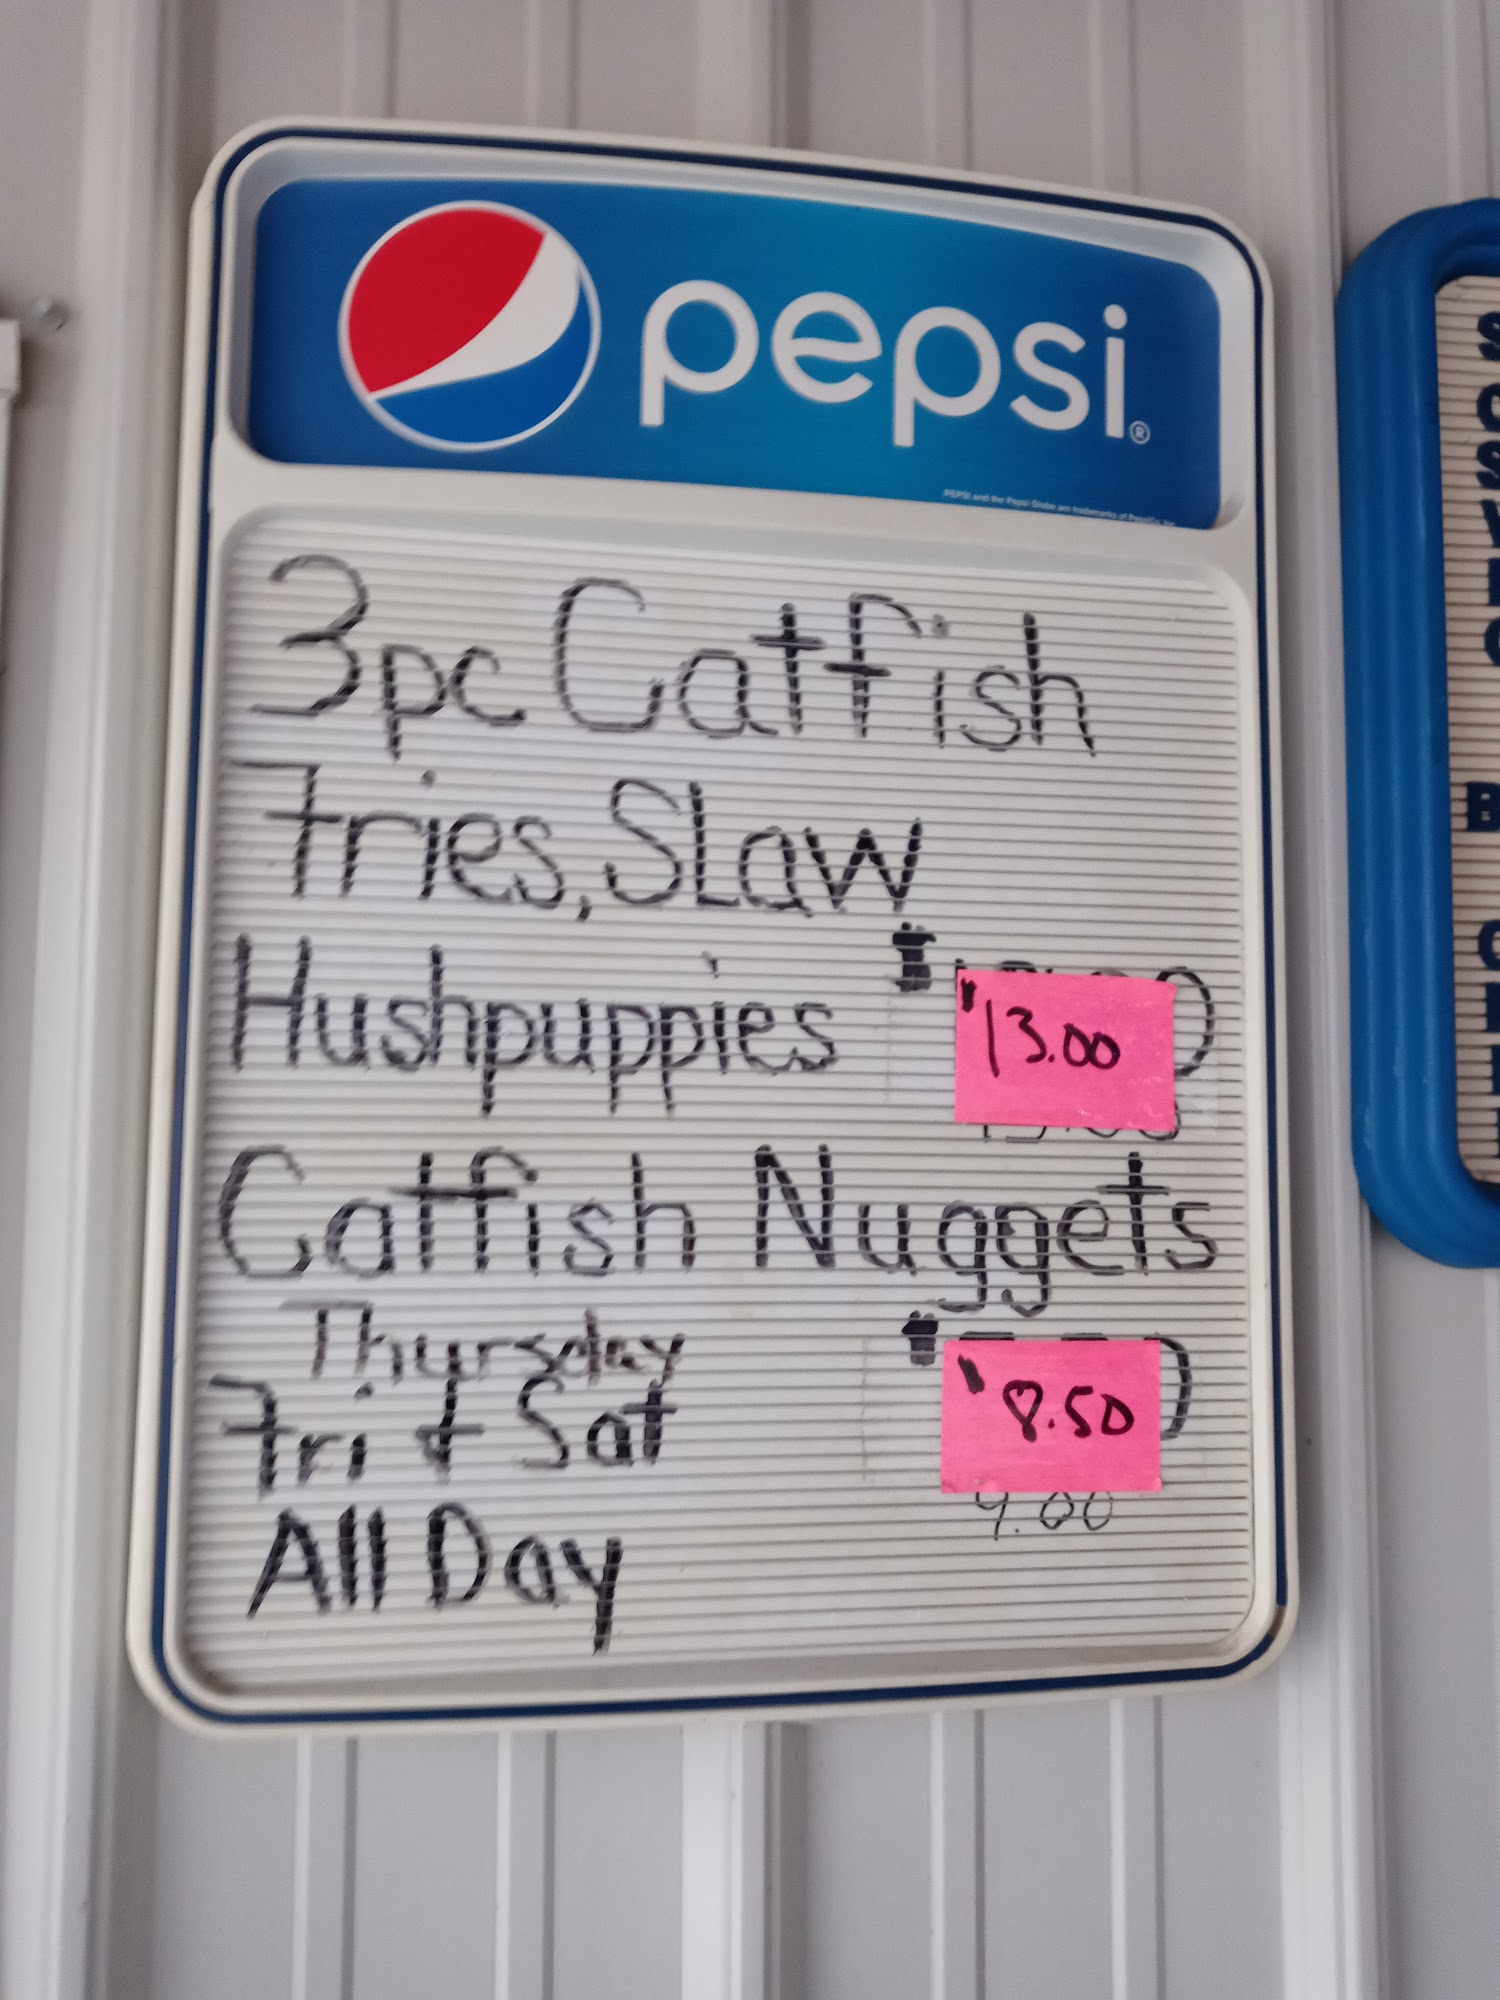 pepsi®
PEPSI and the Pepsi Globe are trademarks of PepsiCo, Inc.
3pc Catfish
Fries, SLaw
Hushpuppies $
$13.00
Catfish Nuggets
Thursday $
$8.50
Fri & Sat
9.00
All Day